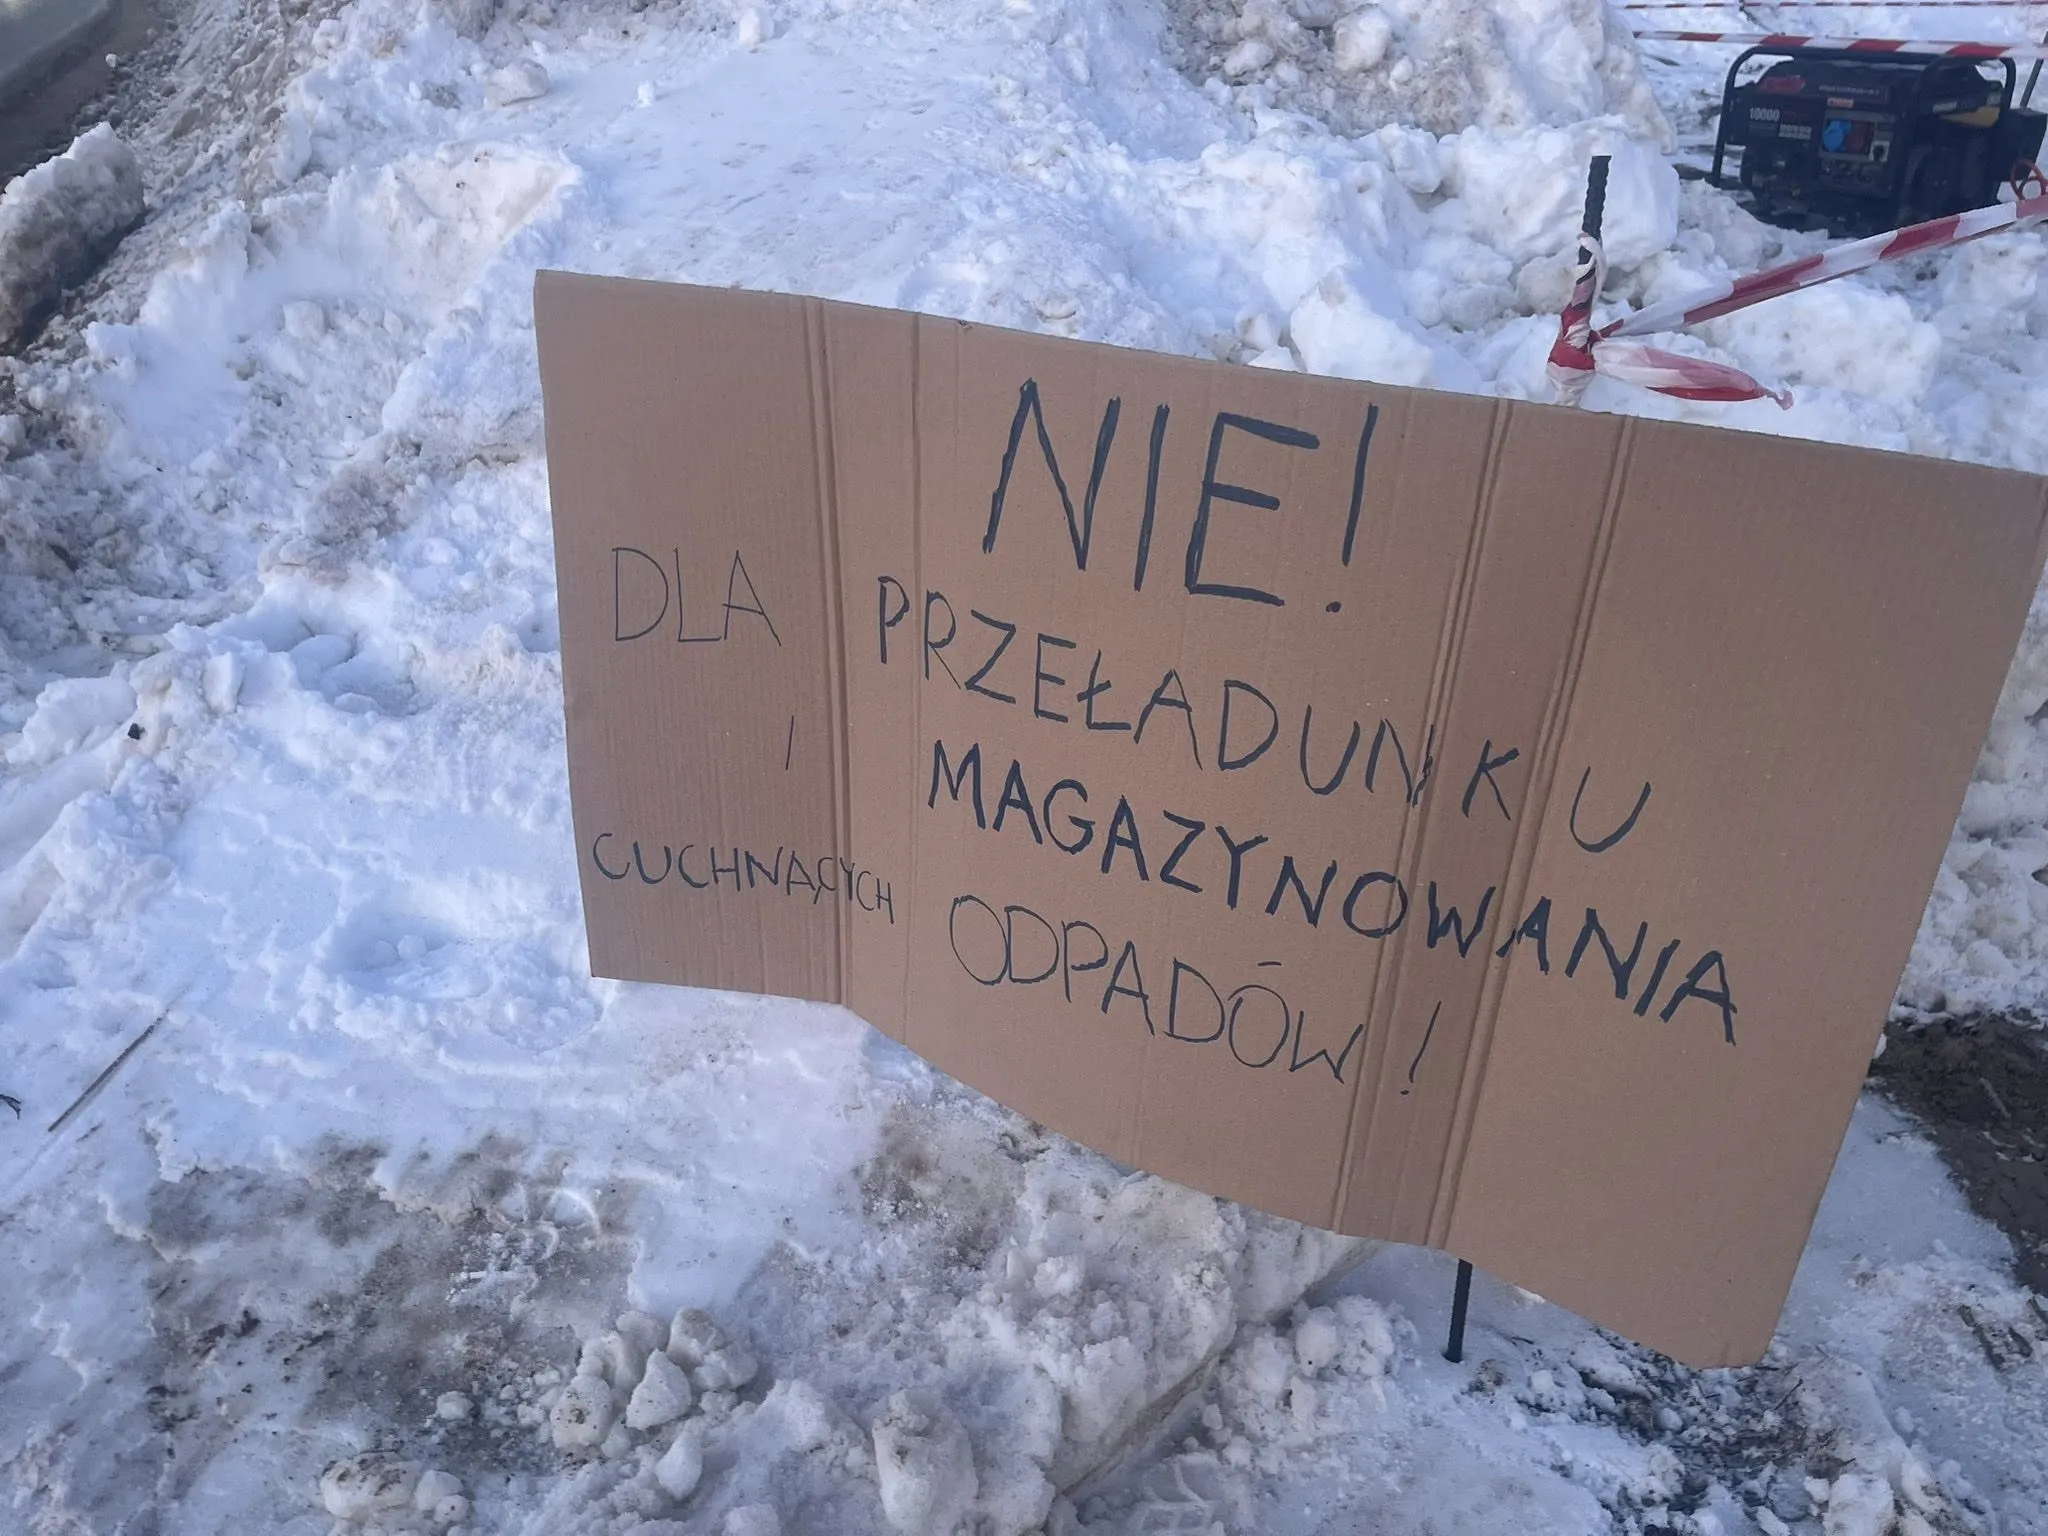 NIE!
DLA PRZEŁADUNKU
I MAGAZYNOWANIA
CUCHNĄCYCH ODPADÓW!
10000